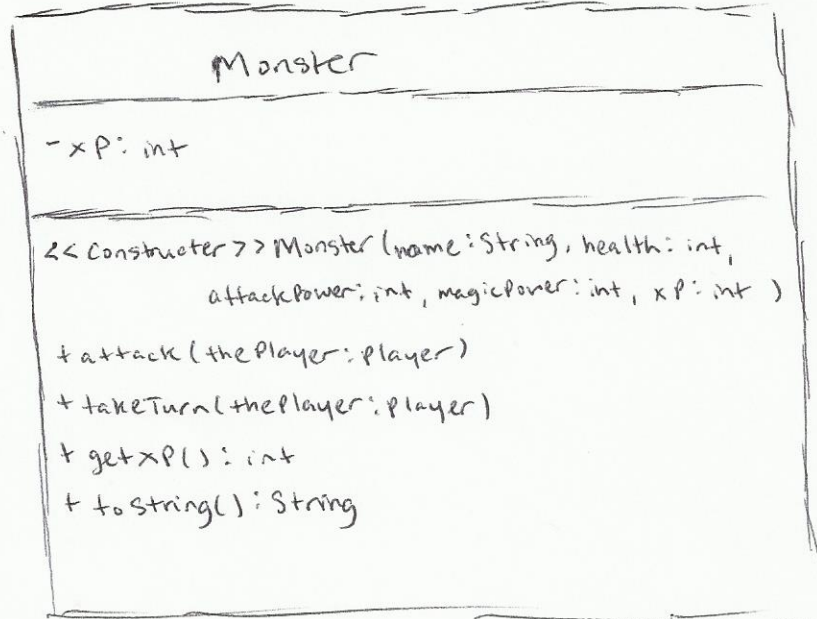 Monster
- xP: int
<<Constructer>> Monster (name: String, health: int,
attackPower: int, magicPower: int, xP: int )
+ attack (thePlayer: player)
+ takeTurn (thePlayer: player)
+ getxP(): int
+ toString(): String